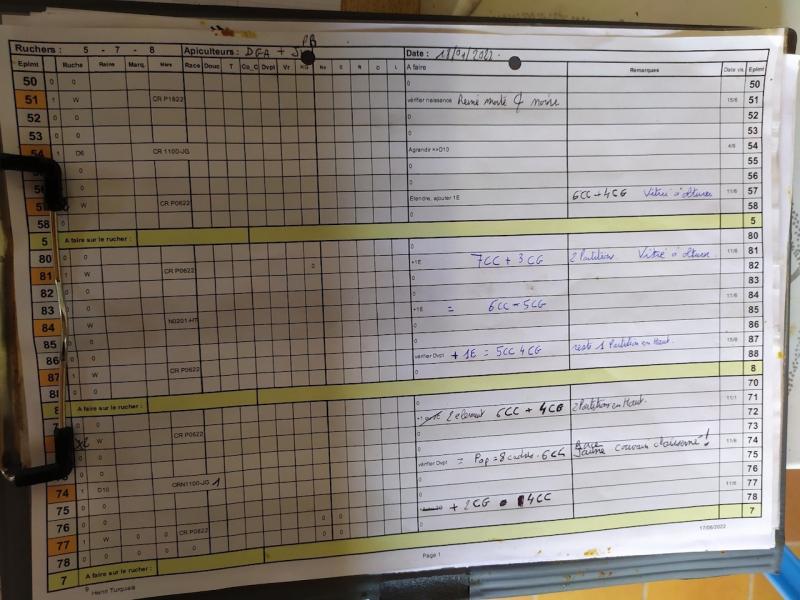 Ruchers : 5 - 7 - 8 Apiculteurs : DGA + PB Date :
Eplmt Ruche Reine Marq. Mère Race Douc T Co_C Dvpt Vr A faire Remarques Date vis. Eplmt
50 0 0 0 50
51 1 W CR P1622 vérifier naissance Reine morte noire 15/6 51
52 0 0 0 52
53 0 0 0 53
54 1 D6 CR 1100-JG Agrandir =>D10 4/6 54
55 0 55
56 0 56
57 W CR P0622 Etendre, ajouter 1E 6CC + 4CG Vitré 11/6 57
58 0 0 58
5 A faire sur le rucher : 5
80 0 0 0 80
81 1 W CR P0622 +1E 7CC + 3CG 2 Partitions Vitré 11/6 81
82 0 0 82
83 0 0 0 83
84 W N0201-HT +1E = 6CC - 5CG 11/6 84
85 0 0 0 85
86 0 0 0 86
87 1 W CR P0622 vérifier Dvpt + 1E = 5CC 4CG reste 1 Partition en Haut. 15/6 87
88 0 88
8 A faire sur le rucher : 8
70 0 70
71 W CR P0622 2 element 6CC + 4CG 2 Partition en Haut. 11/1 71
72 0 0 0 72
0 0
74 1 D10 CRN1100-JG 1 vérifier Dvpt = Pop = 8 cadres - 6CC couvain claisonné! 11/6 74
75 0 0 0 75
76 0 0 0 76
77 1 W CR P0622 + 2CG 4CC 11/6 77
78 0 0 0 78
7 A faire sur le rucher : 7
Henri Turquais Page 1 17/06/2022